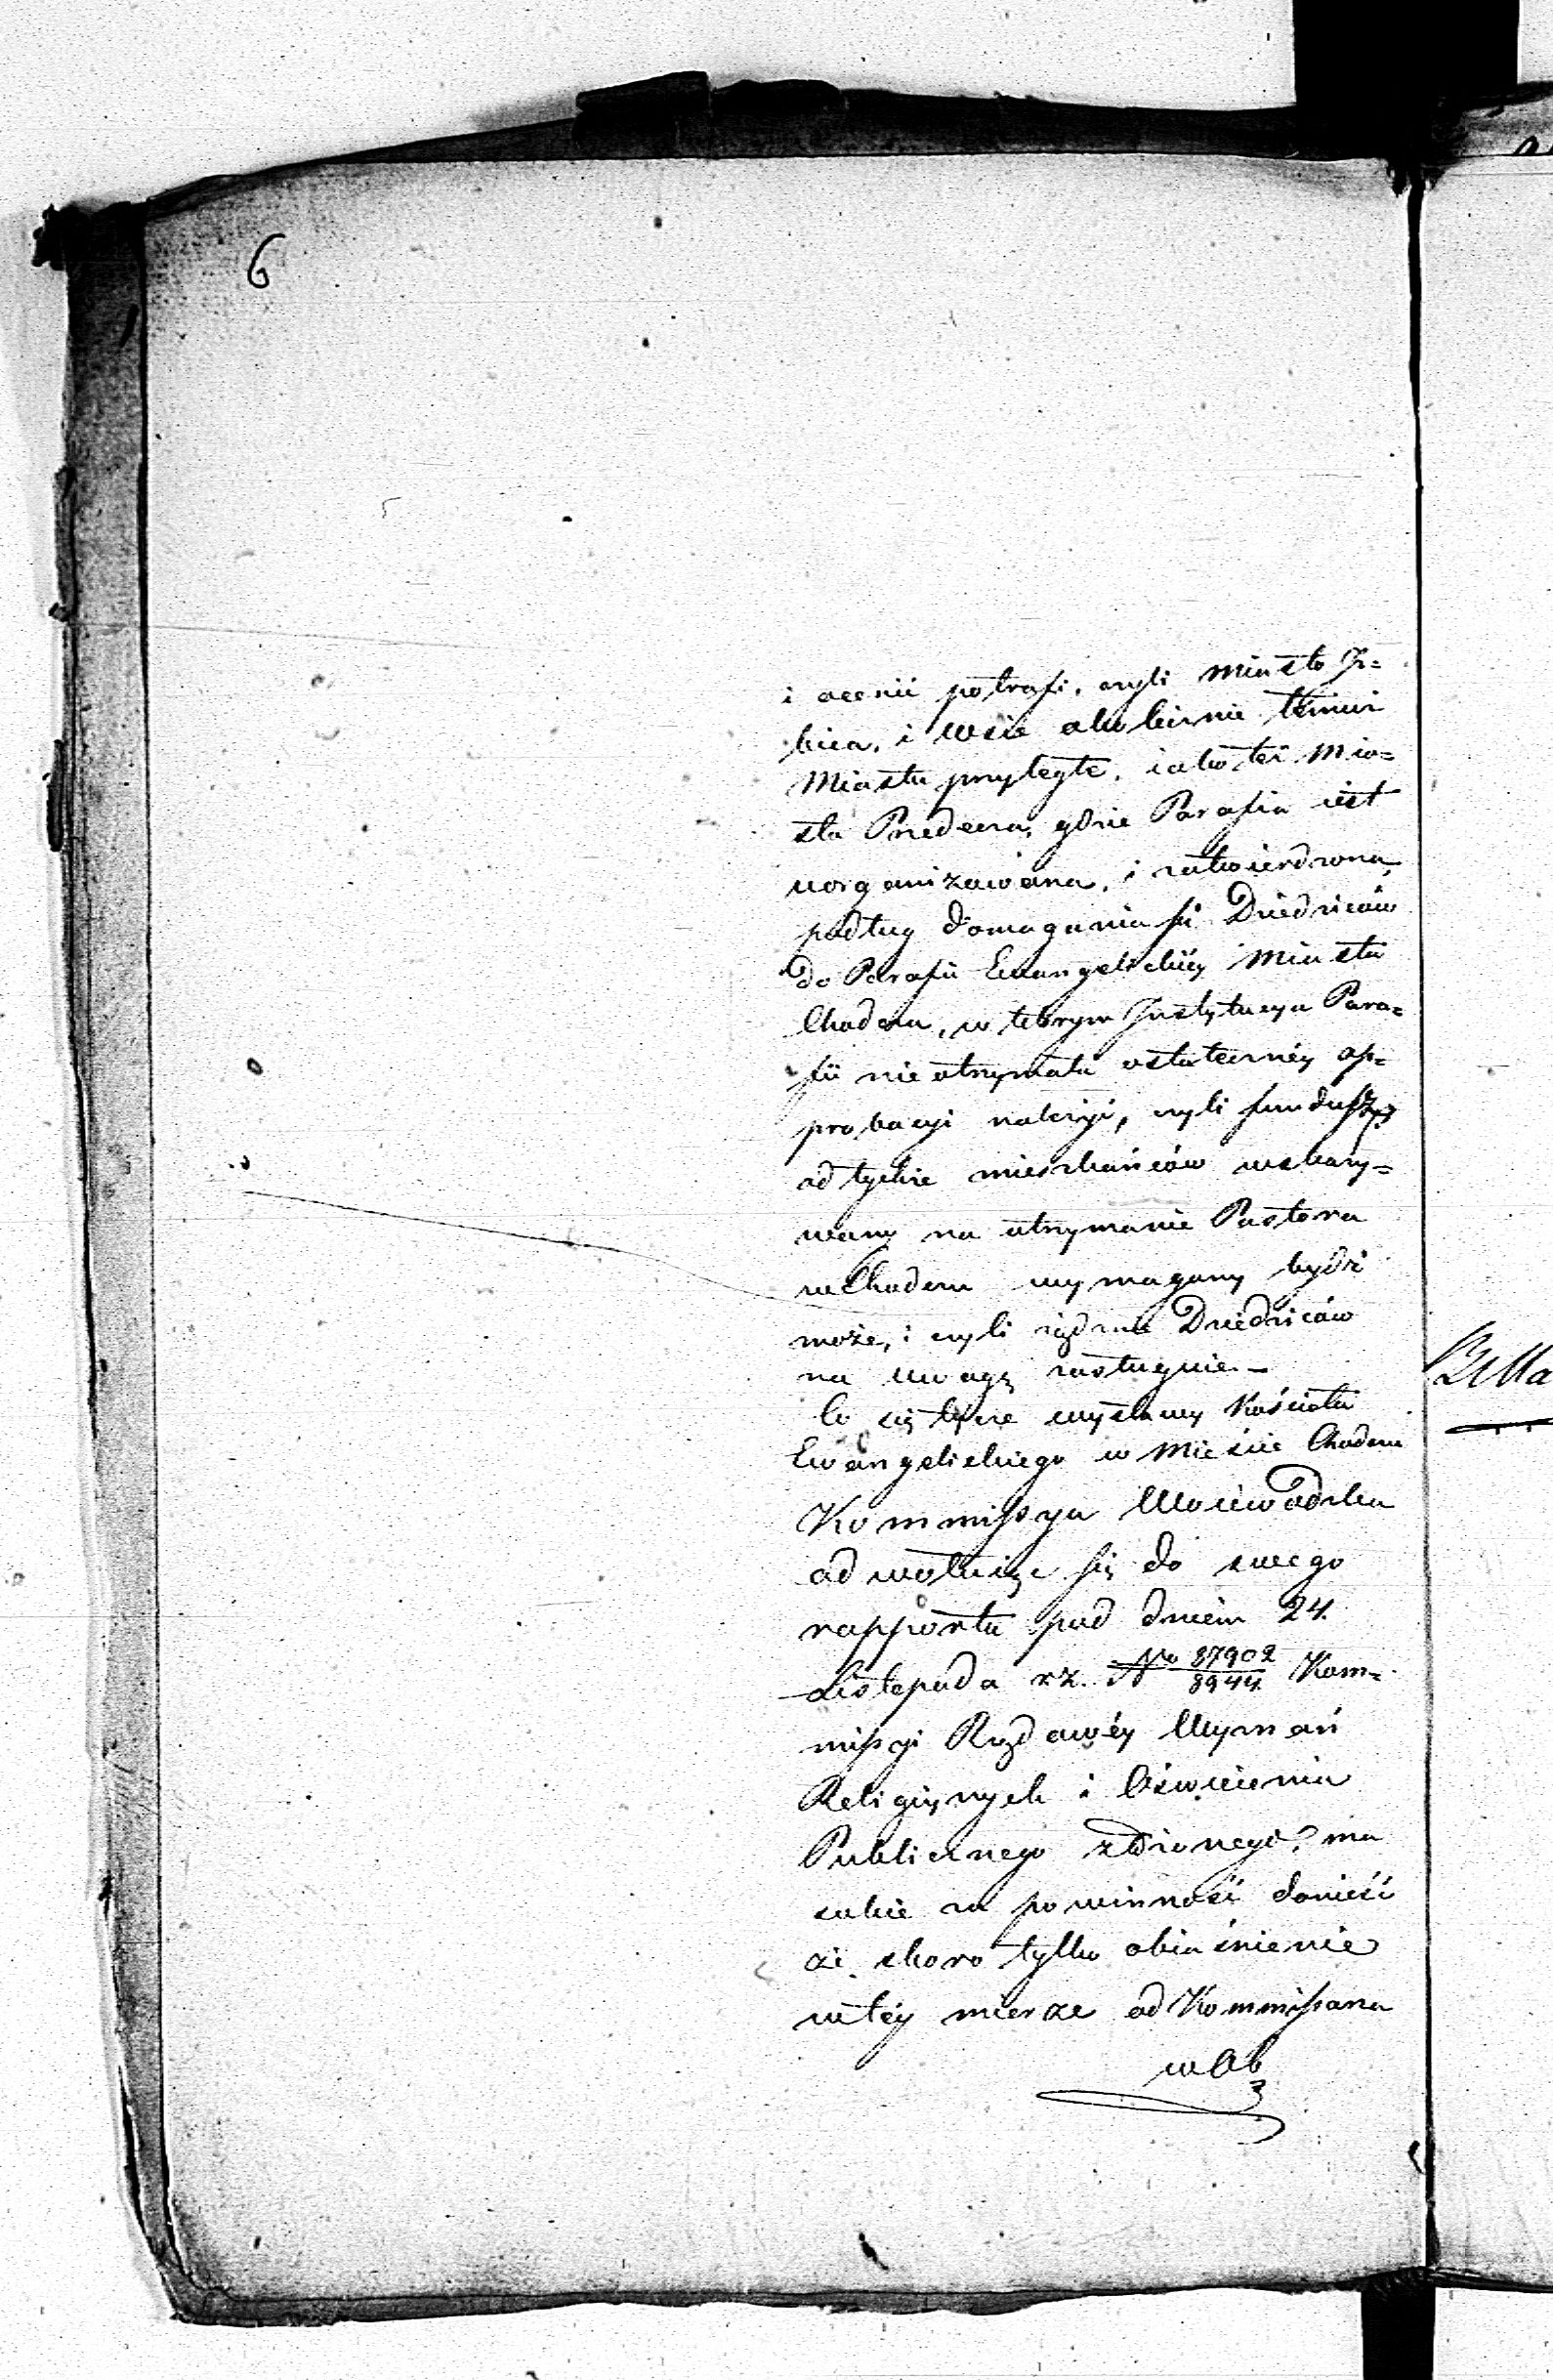 6
i ocenić potrafi, czyli Miasto Iz=
bica, i Wsie okolicznie temuż
Miastu przyległe, iako też Mia=
sta Przedecza, gdzie Parafia iest
uorganizowana, i zatwierdzona,
podług domagania się Dziedziców
do Parafii Ewangelickiey Miasta
Chodcza, w którym Instytucya Para=
fii nie otrzymała ostateczney ap=
probacyi należyć, czyli fundusz
od tychże mieszkańców wskazy=
wany na utrzymanie Pastora
w Chodczu wymagany bydź
może, i czyli żądanie Dziedziców
na uwagę zasługuie. –
Co się tycze wystawy Kościoła
Ewangelickiego w Mieście Chodczu
Kommissya Woiewódzka
odwołuiąc się do swego
rapportu pod dniem 24.
Listopada rz. No 87902/8944 Kom=
missyi Rządowéy Wyznań
Religiynych i Oświecenia
Publicznego złożonego, ma
sobie za powinność donieść
że skoro tylko obiaśnienie
w téy mierze od Kommissarza
w Ob